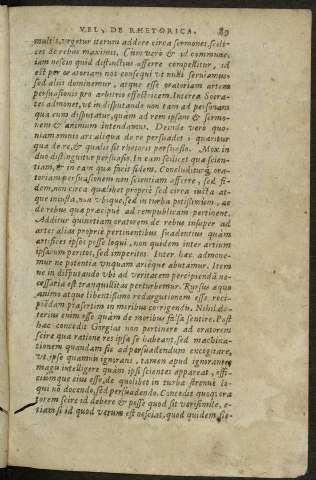 VEL, DE RHETORICA. 89
multis, urgetur iterum addere circa sermones, scili-
cet de rebus maximis. Cum vero & id commune, e-
tiam nescio quid distinctius afferre compellitur, id
est per oratoriam nos consequi ut nulli serviamus,
sed aliis dominemur, atque esse oratoriam artem
persuasionis pro arbitrio effectricem. Interea Socra-
tes admonet, ut in disputando non tam ad personam
qua cum disputatur, quam ad rem ipsam & sermo-
nem & animum intendamus. Deinde vero quo-
niam omnis ars aliqua de re persuadet: quaeritur
qua de re, & qualis sit rhetoris persuasio. Mox in
duo distinguitur persuasio. In eam scilicet quae scien-
tiam, & in eam quae facit fidem. Concluditurque, ora-
toriam persuasionem non scientiam afferre, sed fi-
dem, non circa quaelibet proprie sed circa iusta at-
que iniusta, nec ubique, sed in turba potissimum, ac
de rebus quae praecipue ad rempublicam pertinent.
Additur quinetiam oratorem de rebus insuper ad
artes alias proprie pertinentibus suadentius quam
artifices ipsos posse loqui, non quidem inter artium
ipsarum peritos, sed imperitos. Inter haec admone-
mur ne potentia unquam arteque abutamur. Item
ne in disputando ubi ad veritatem percipiendam ne-
cessaria est tranquillitas perturbemur. Rursus aequo
animo atque libentissimo redargutionem esse reci-
piendam praesertim in moribus corrigendis. Nihil de-
terius enim esse quam de moribus falsa sentire. Post
haec concedit Gorgias non pertinere ad oratorem
scire qua ratione res ipsae se habeant, sed machina-
tionem quandam sic ad persuadendum excogitare,
ut ipse quamvis ignorans, tamen apud ignorantes
magis intelligere quam ipsi scientes appareat, effi-
ciumque eius esse, de quolibet in turba strenue lo-
qui non docendo, sed persuadendo. Concedit quoque, ora-
torem scire id debere & posse quod sit verisimile, e-
tiam si id quod verum est nesciat, quod quidem fie-